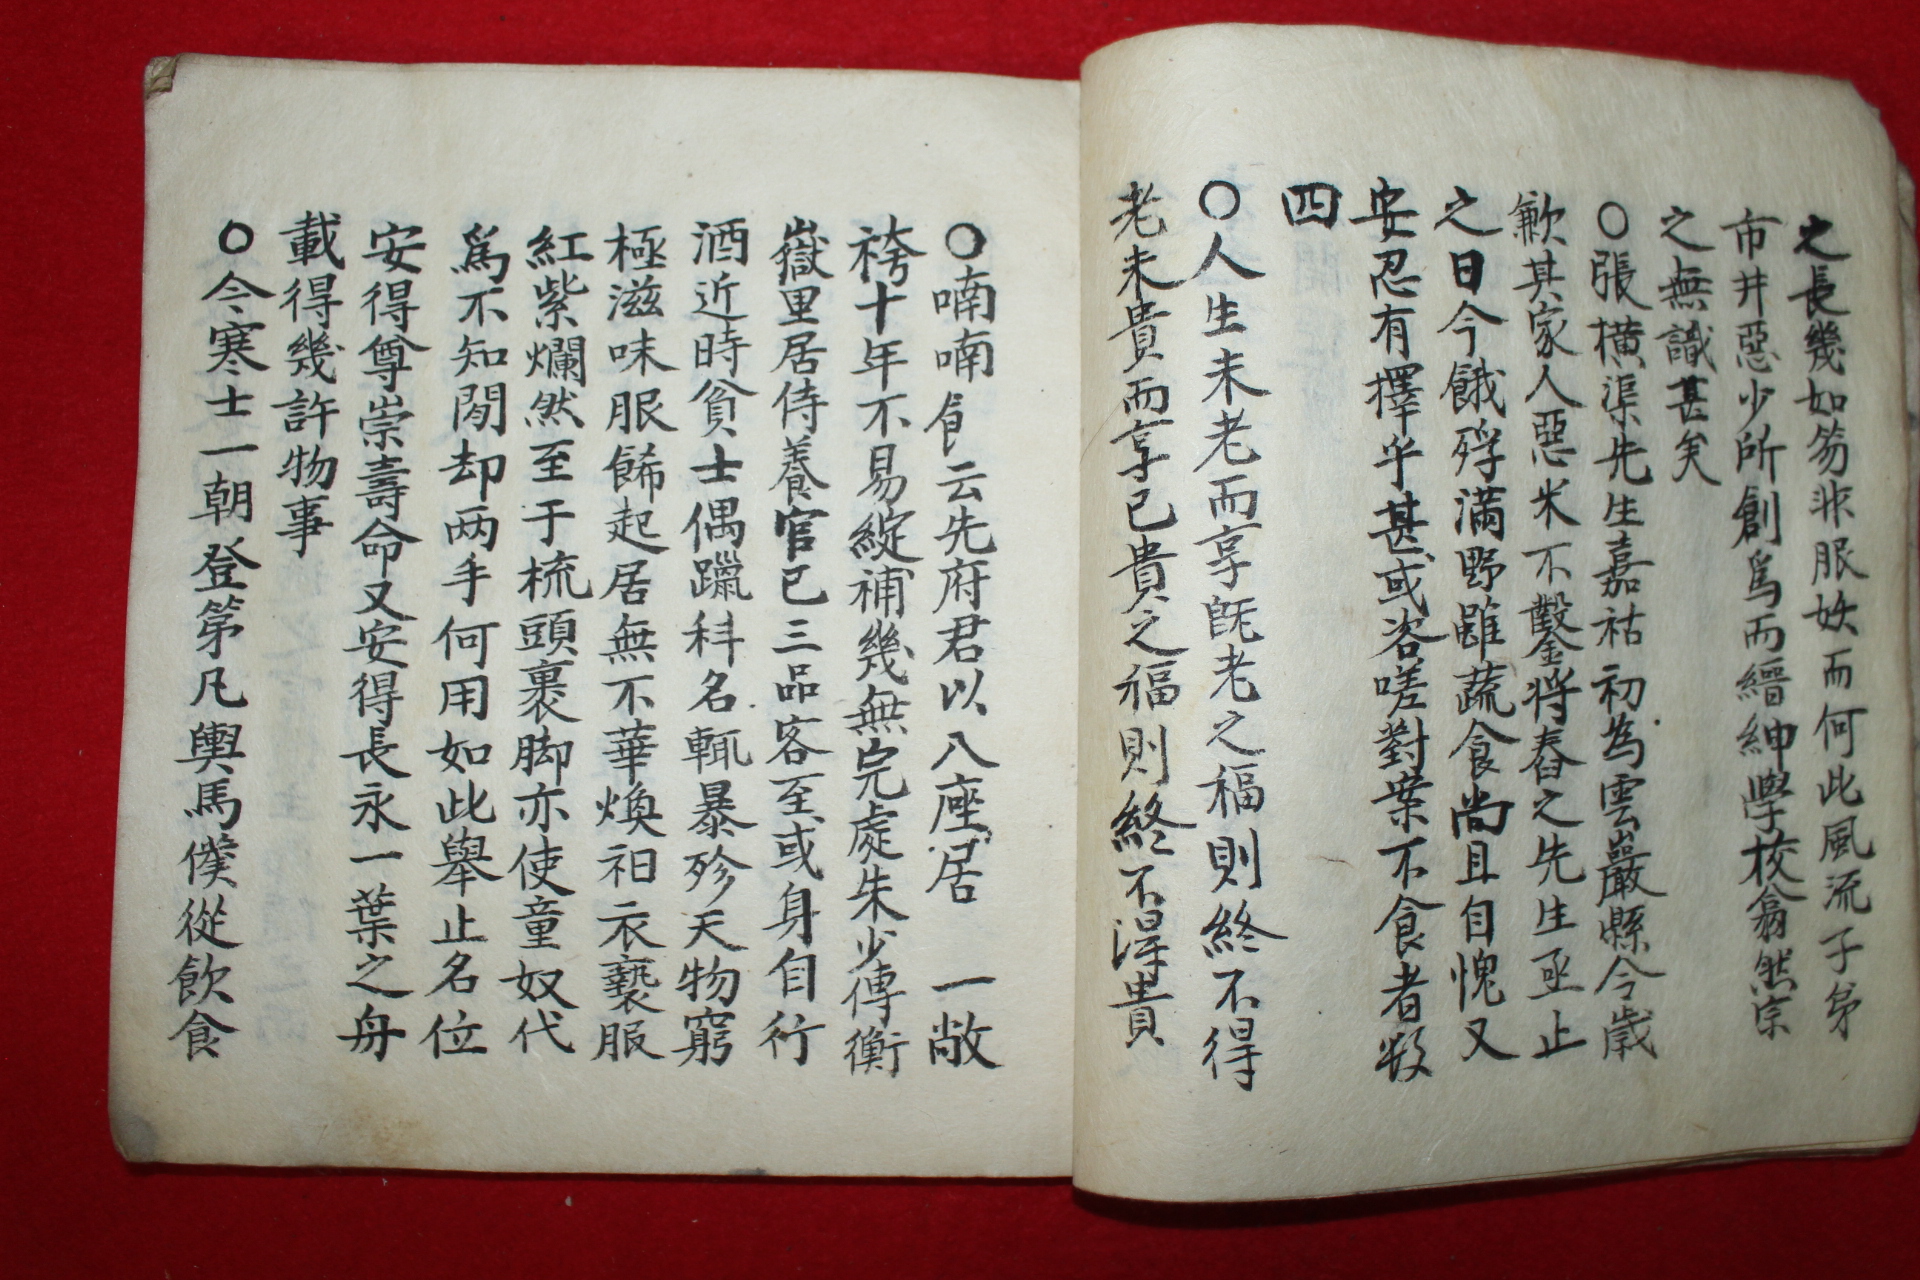 之長幾如笏非服妖而何此風流子弟
市井惡少所創爲而縉紳學校翕然宗
之無識甚矣
○張橫渠先生嘉祐初為雲巖縣令歲
歉其家人惡米不鑿將舂之先生亟止
之日今餓殍滿野雖蔬食尚且自愧又
安忍有擇乎甚或咨嗟對案不食者数
四
○人生未老而享旣老之福則終不得
老未貴而享已貴之福則終不得貴
○喃喃𩙿云先府君以八座居 一敝
袴十年不易綻補幾無完處朱少傅衡
嶽里居侍養官已三品客至或身自行
酒近時貧士偶躐科名輒暴殄天物窮
極滋味服餙起居無不華煥衵衣褻服
紅紫爛然至于梳頭裹脚亦使童奴代
爲不知閒却两手何用如此舉止名位
安得尊崇壽命又安得長永一葉之舟
載得幾許物事
○今寒士一朝登第凡輿馬僕從飲食